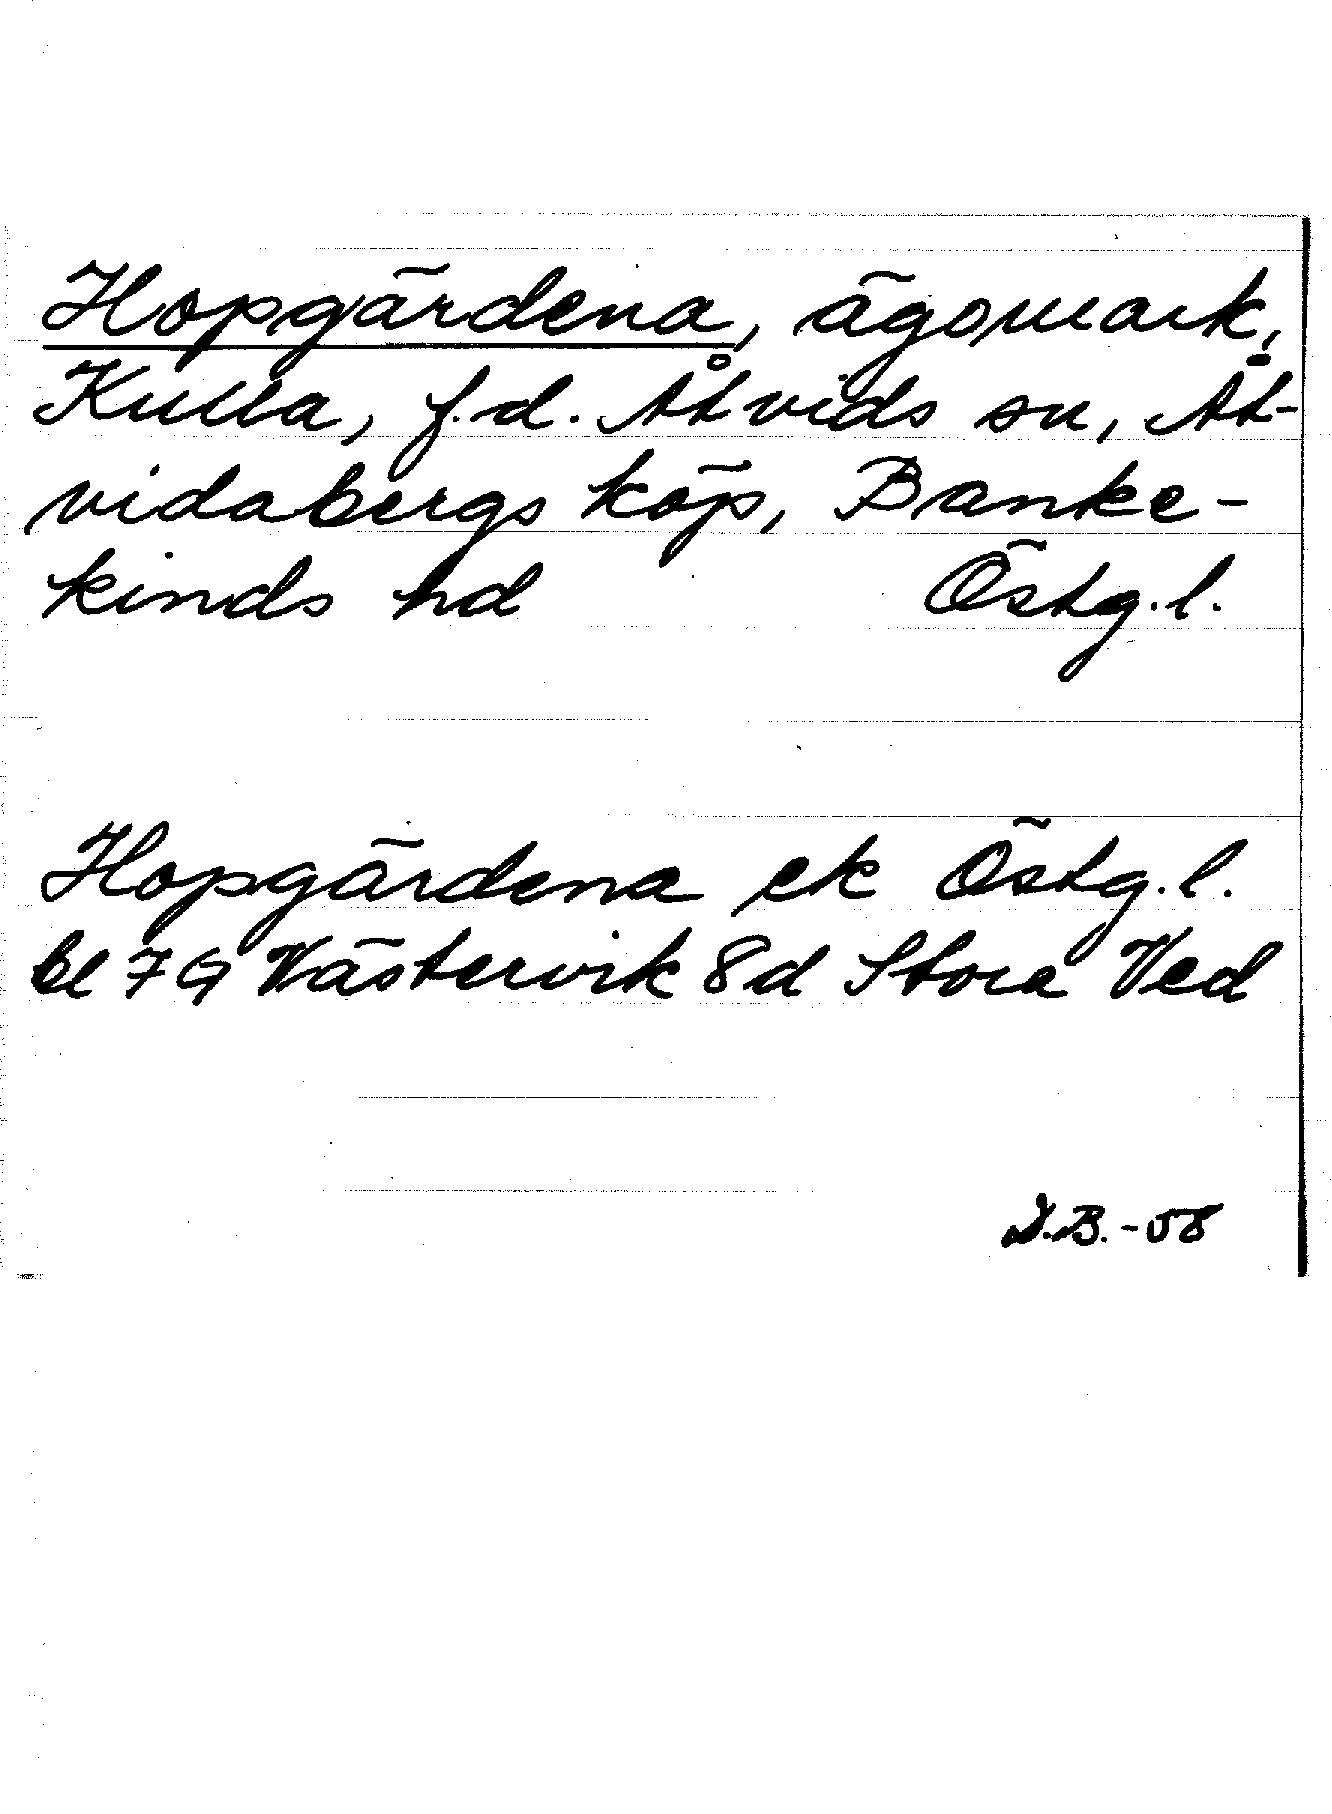 Hopgärdena, ägomark,
Kulla, f.d. Åtvids sn, Åt-
vidabergs köp, Banke-
kinds hd Östg.l.
Hopgärdena ek Östg.l.
bl 7G Västervik 8d Stora Ved
D.B.-58